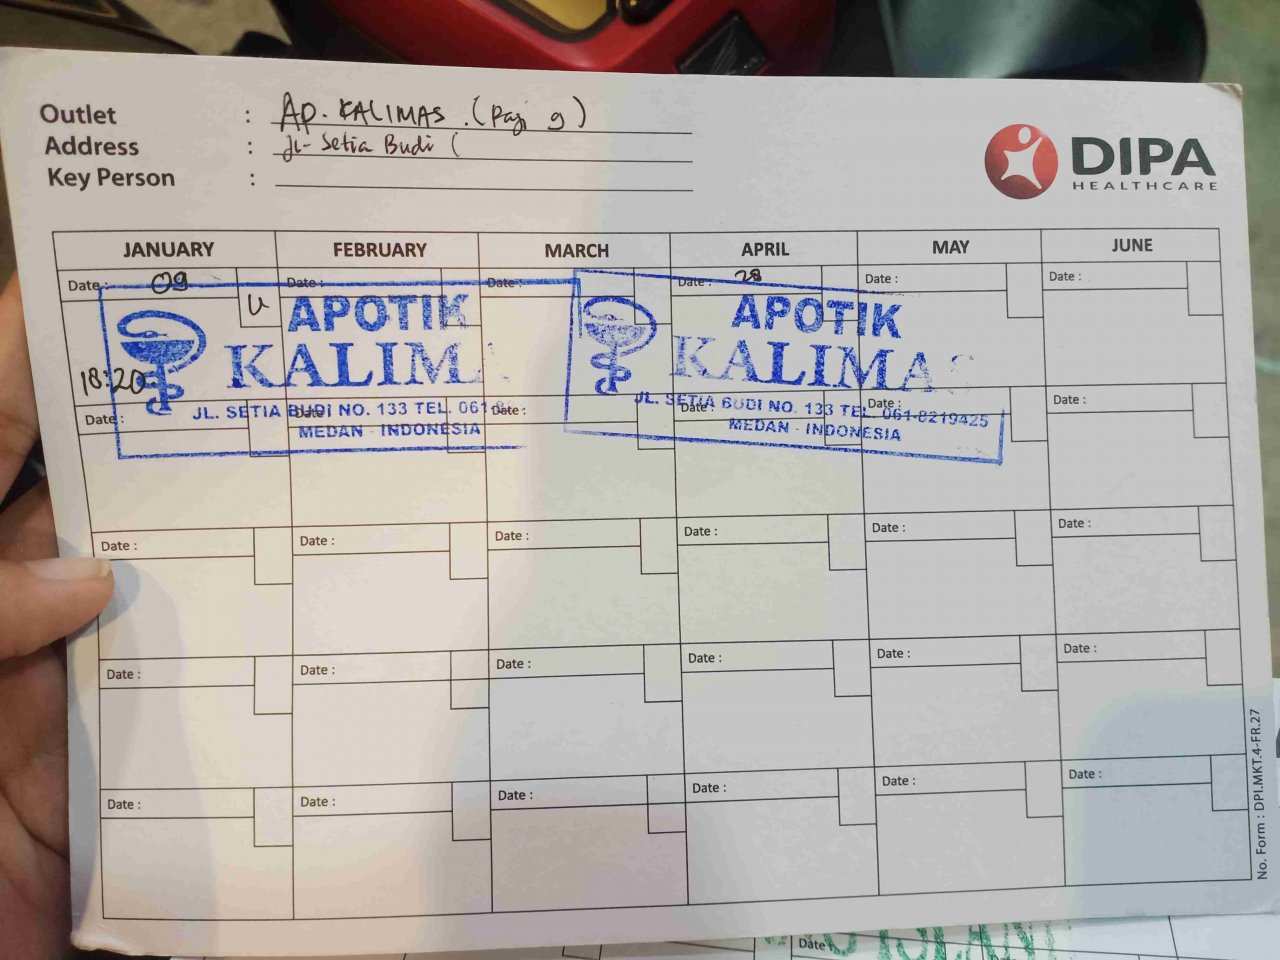 Outlet : Ap. KALIMAS. (Pagi 9)
Address : Jl- Setia Budi (
Key Person :
DIPA
HEALTHCARE
JANUARY FEBRUARY MARCH APRIL MAY JUNE
Date: 09 Date: Date: Date: 28 Date : Date :
U
APOTIK
KALIM
18:20
JL. SETIA BUDI NO. 133 TEL. 061
MEDAN - INDONESIA
APOTIK
KALIMAS
JL. SETIA BUDI NO. 133 TEL. 061-8219425
MEDAN - INDONESIA
Date: Date: Date: Date: Date : Date :
Date : Date : Date : Date : Date : Date :
Date : Date : Date : Date : Date : Date :
Date : Date : Date : Date : Date : Date :
No. Form : DPI.MKT.4-FR.27
Date